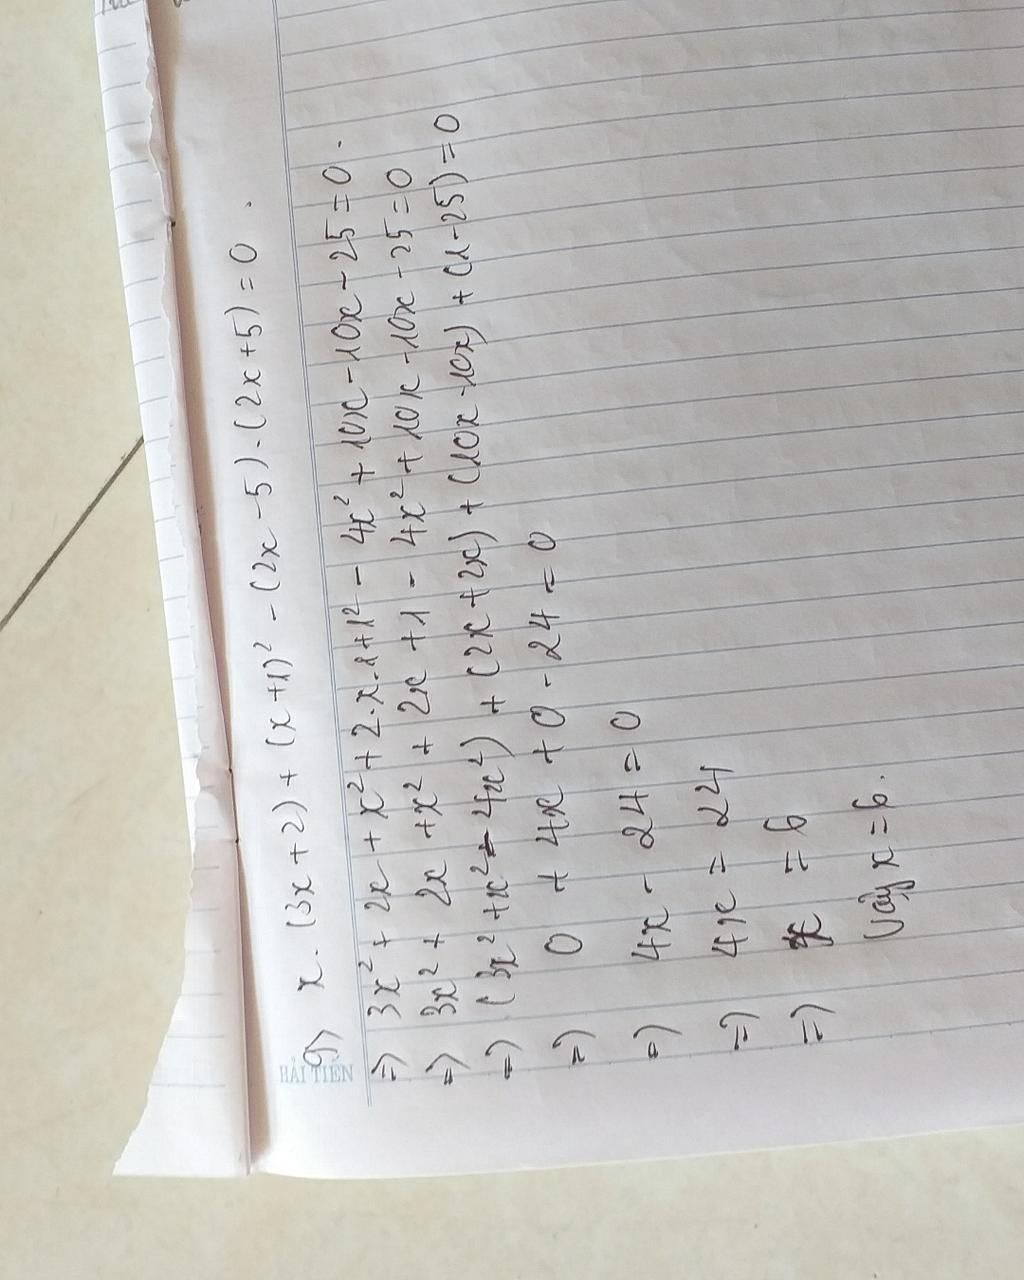 g) x.(3x+2)+(x+1)² - (2x-5).(2x+5)=0.
HẢI TIẾN
=) 3x²+2x+x²+2.x.1+1² - 4x²+10x-10x-25=0.
=) 3x²+2x+x²+2x+1-4x²+10x-10x-25=0
=) (3x²+x²-4x²)+(2x+2x)+(10x-10x)+(1-25)=0
=) 0+4x+0-24=0
=) 4x-24=0
=) 4x=24
=) x=6
Vậy x=6.